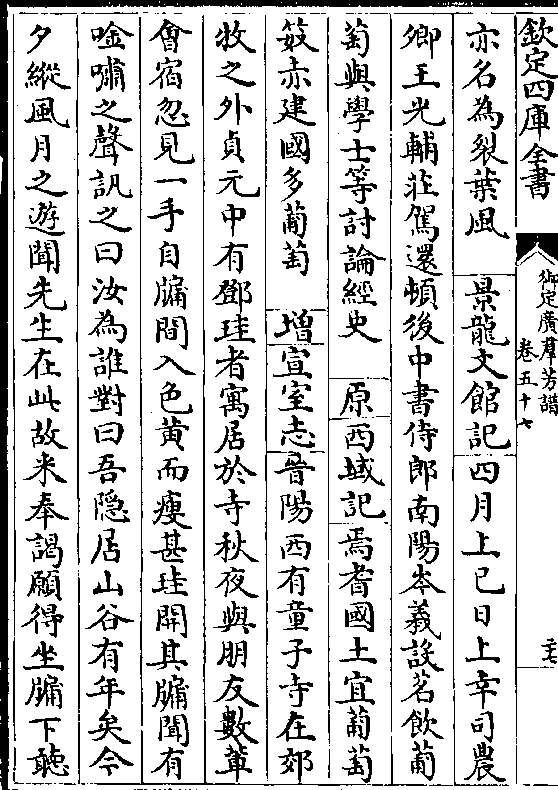 欽定四庫全書
御定廣羣芳譜
卷五十七
亦名為裂葉風　景龍文館記四月上巳日上幸司農
卿王光輔莊駕還頓後中書侍郎南陽岑義設茗飲葡
萄與學士等討論經史　原西域記焉耆國土宜葡萄
篍赤建國多葡萄　增宣室志晉陽西有童子寺在郊
牧之外貞元中有鄧珪者寓居於寺秋夜與朋友數輩
會宿忽見一手自牖間入色黄而瘦甚珪開其牖聞有
唫嘯之聲訊之曰汝為誰對曰吾隐居山谷有年矣今
夕縱風月之遊聞先生在此故来奉謁願得坐牖下聽